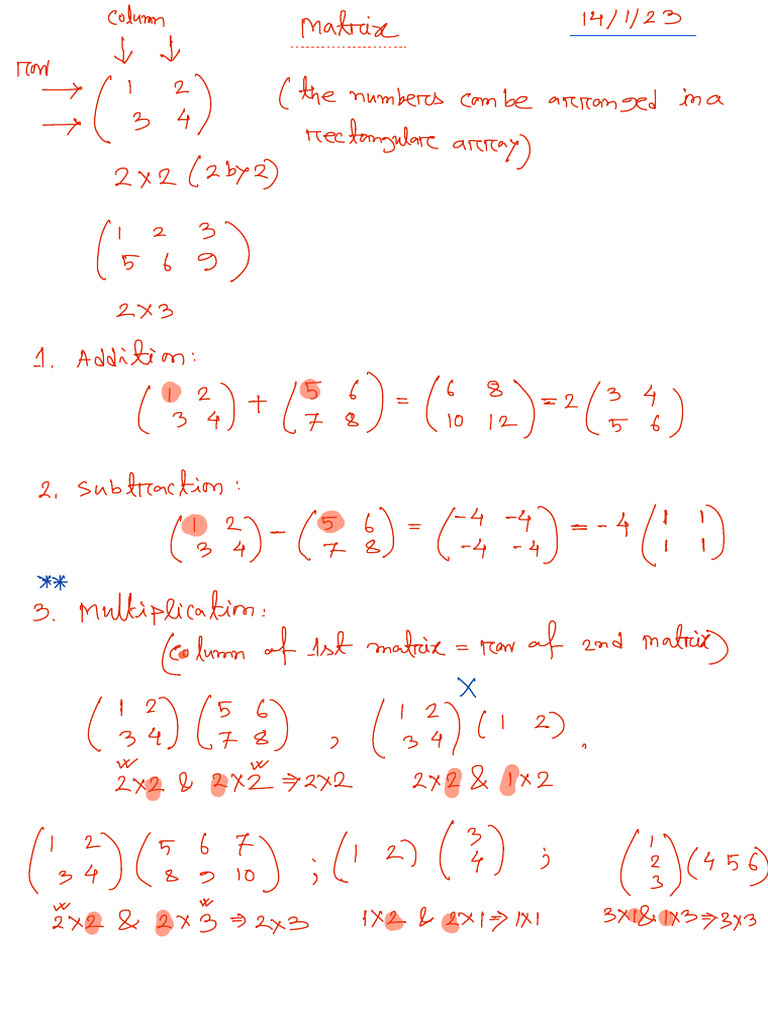 column
Matrix
14/1/23
row
(1 2
3 4)
(the numbers can be arranged in a
rectangular array)
2×2 (2 by 2)
(1 2 3
5 6 9)
2×3
1. Addition:
(1 2
3 4) + (5 6
7 8) = (6 8
10 12) = 2 (3 4
5 6)
2. Subtraction:
(1 2
3 4) − (5 6
7 8) = (−4 −4
−4 −4) = −4 (1 1
1 1)
**
3. Multiplication:
(column of 1st matrix = row of 2nd matrix)
(1 2
3 4) (5 6
7 8) , (1 2
3 4) × (1 2) .
2×2 & 2×2 ⇒ 2×2 2×2 & 1×2
(1 2
3 4) (5 6 7
8 9 10) ; (1 2) (3
4) ; (1
2
3) (4 5 6)
2×2 & 2×3 ⇒ 2×3 1×2 & 2×1 ⇒ 1×1 3×1 & 1×3 ⇒ 3×3